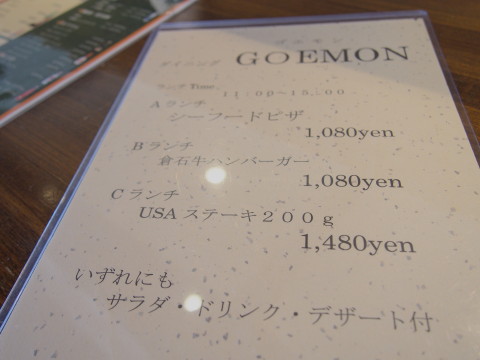 ゴエモン
ダイニング GOEMON
ランチTime
11:00~15:00
Aランチ
シーフードピザ
1,080yen
Bランチ
倉石牛ハンバーガー
1,080yen
Cランチ
USAステーキ200g
1,480yen
いずれにも
サラダ・ドリンク・デザート付